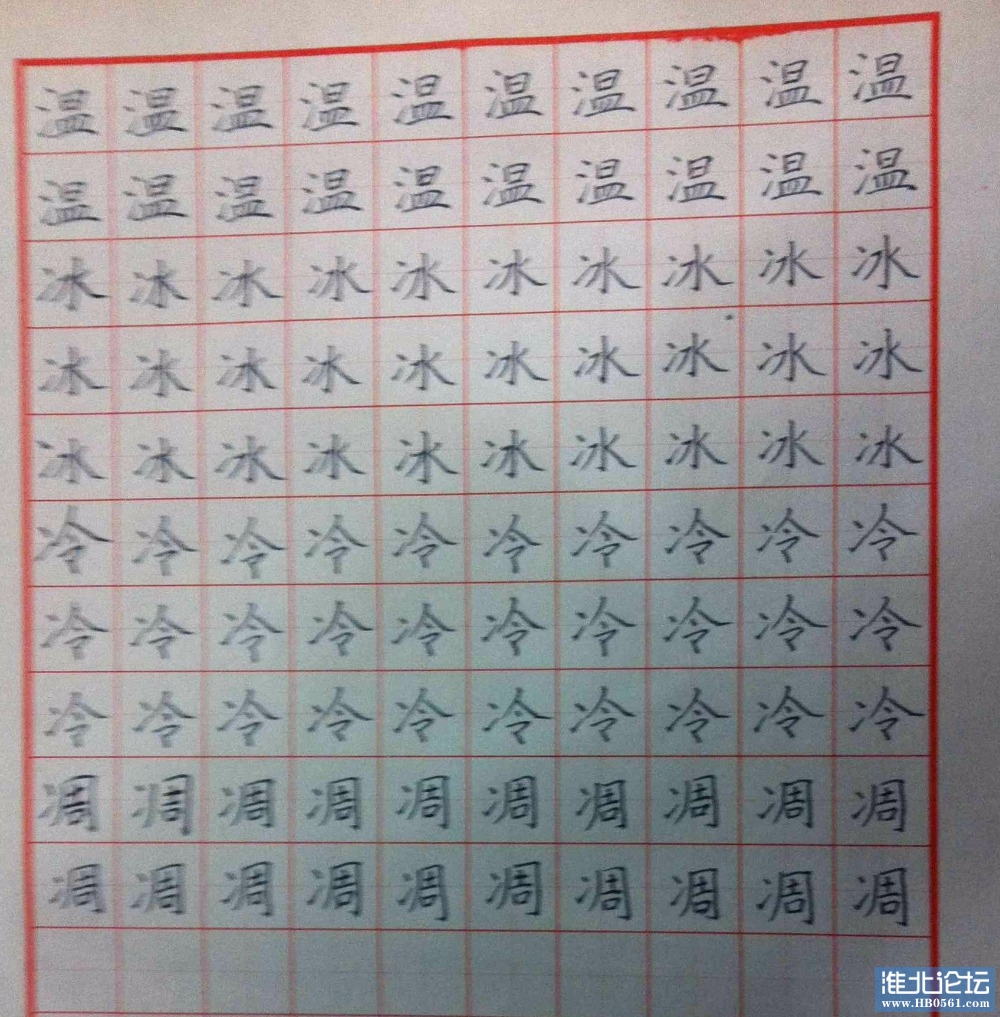 温温温温温温温温温温
温温温温温温温温温温
冰冰冰冰冰冰冰冰冰冰
冰冰冰冰冰冰冰冰冰冰
冰冰冰冰冰冰冰冰冰冰
冷冷冷冷冷冷冷冷冷冷
冷冷冷冷冷冷冷冷冷冷
冷冷冷冷冷冷冷冷冷冷
凋凋凋凋凋凋凋凋凋凋
凋凋凋凋凋凋凋凋凋凋
淮北论坛
www.HB0561.com